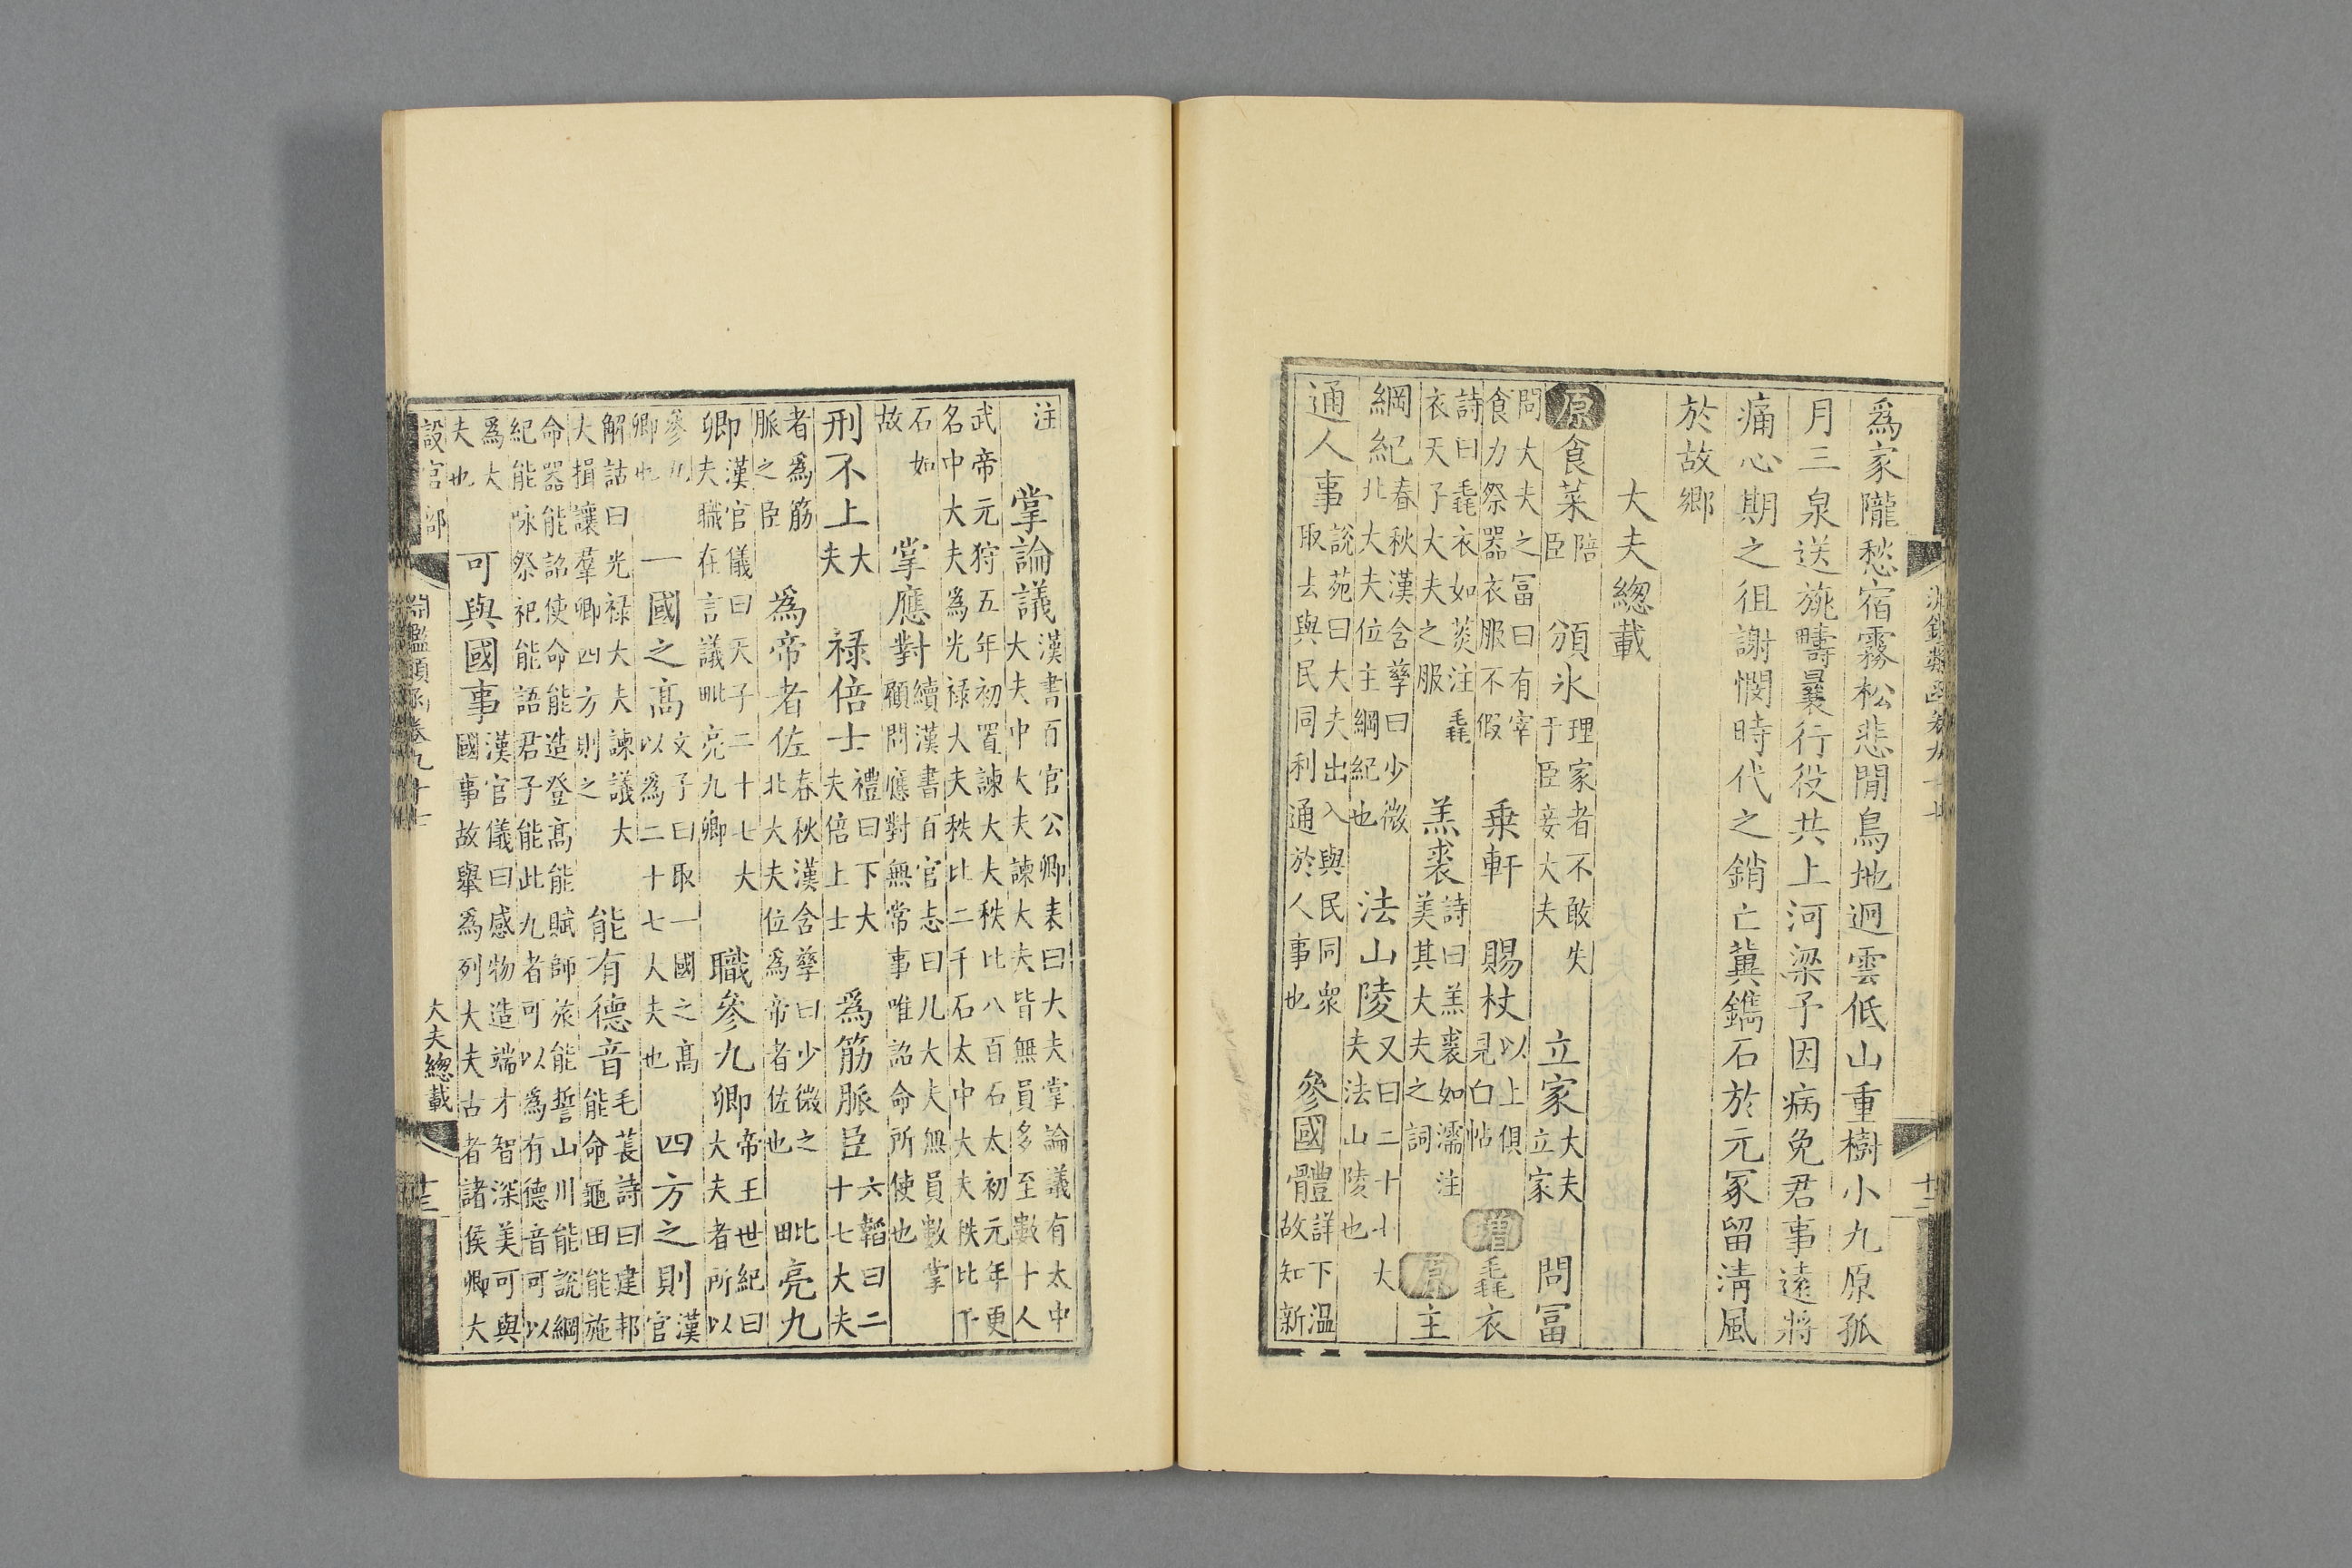 爲家隴愁宿霧松悲閒鳥地迥雲低山重樹小九原孤
月三泉送旐疇曩行役共上河梁予因病免君事遠將
痛心期之徂謝憫時代之銷亡冀鐫石於元冢留淸風
於故鄉
大夫總載
原食菜陪臣 頒氷理家者不敢失于臣妾大夫 立家大夫立家 問冨
問大夫之冨曰有宰食力祭器衣服不假 乗軒 賜杖以上俱見白帖 增毳衣
詩曰毳衣如菼注毳衣天子大夫之服 羔裘詩曰羔裘如濡注美其大夫之詞 原主
綱紀春秋漢含孳曰少微北大夫位主綱紀也 法山陵又曰二十七大夫法山陵也
通人事說苑曰大夫出入與民同衆取去與民同利通於人事也 參國體詳下溫故知新
注 掌論議漢書百官公卿表曰大夫掌論議有太中大夫中大夫諫大夫皆無員多至數十人
武帝元狩五年初置諫大夫秩比八百石太初元年更名中大夫爲光祿大夫秩比二千石太中大夫秩比千
石如故 掌應對續漢書百官志曰凡大夫無員數掌顧問應對無常事唯詔命所使也
刑不上大夫 祿倍士禮曰下大夫倍上士 爲筋脈臣六韜曰二十七大夫
者爲筋脈之臣 爲帝者佐春秋漢含孳曰少微之北大夫位爲帝者佐也 毗亮九
卿漢官儀曰天子二十七大夫職在言議毗亮九卿 職參九卿帝王世紀曰大夫者所以
參九卿也 一國之髙文子曰取一國之髙以爲二十七大夫也 四方之則漢官
解詁曰光祿大夫諫議大大揖讓羣卿四方則之 能有德音毛萇詩曰建邦能命龜田能施
命器能詔使命能造登髙能賦師旅能誓山川能說綱紀能咏祭祀能語君子能此九者可以爲有德音可以
爲大夫也 可與國事漢官儀曰感物造端才智深美可與國事故舉爲列大夫古者諸侯卿大
設官部 淵鑑類函卷九十七 大夫總載 十三